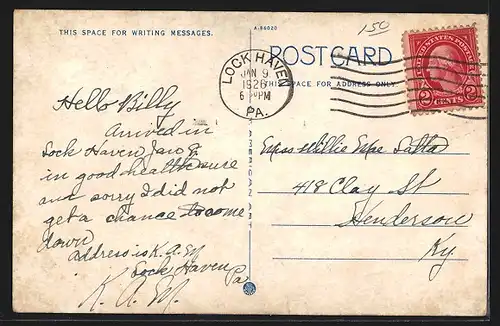 THIS SPACE FOR WRITING MESSAGES.
A-86620
150
POSTCARD
THIS SPACE FOR ADDRESS ONLY.
LOCK HAVEN
JAN 9
1926
6 PM
PA.
UNITED STATES POSTAGE
2 CENTS 2
AMERICAN ART
Hello Billy
Arrived in
Lock Haven, Jan 9,
in good health sure
am sorry I did not
get a chance to come
down
address is K. A. M
Lock Haven
Pa
K. A. M.
Miss Willie Mae
418 Clay St
Henderson
Ky.